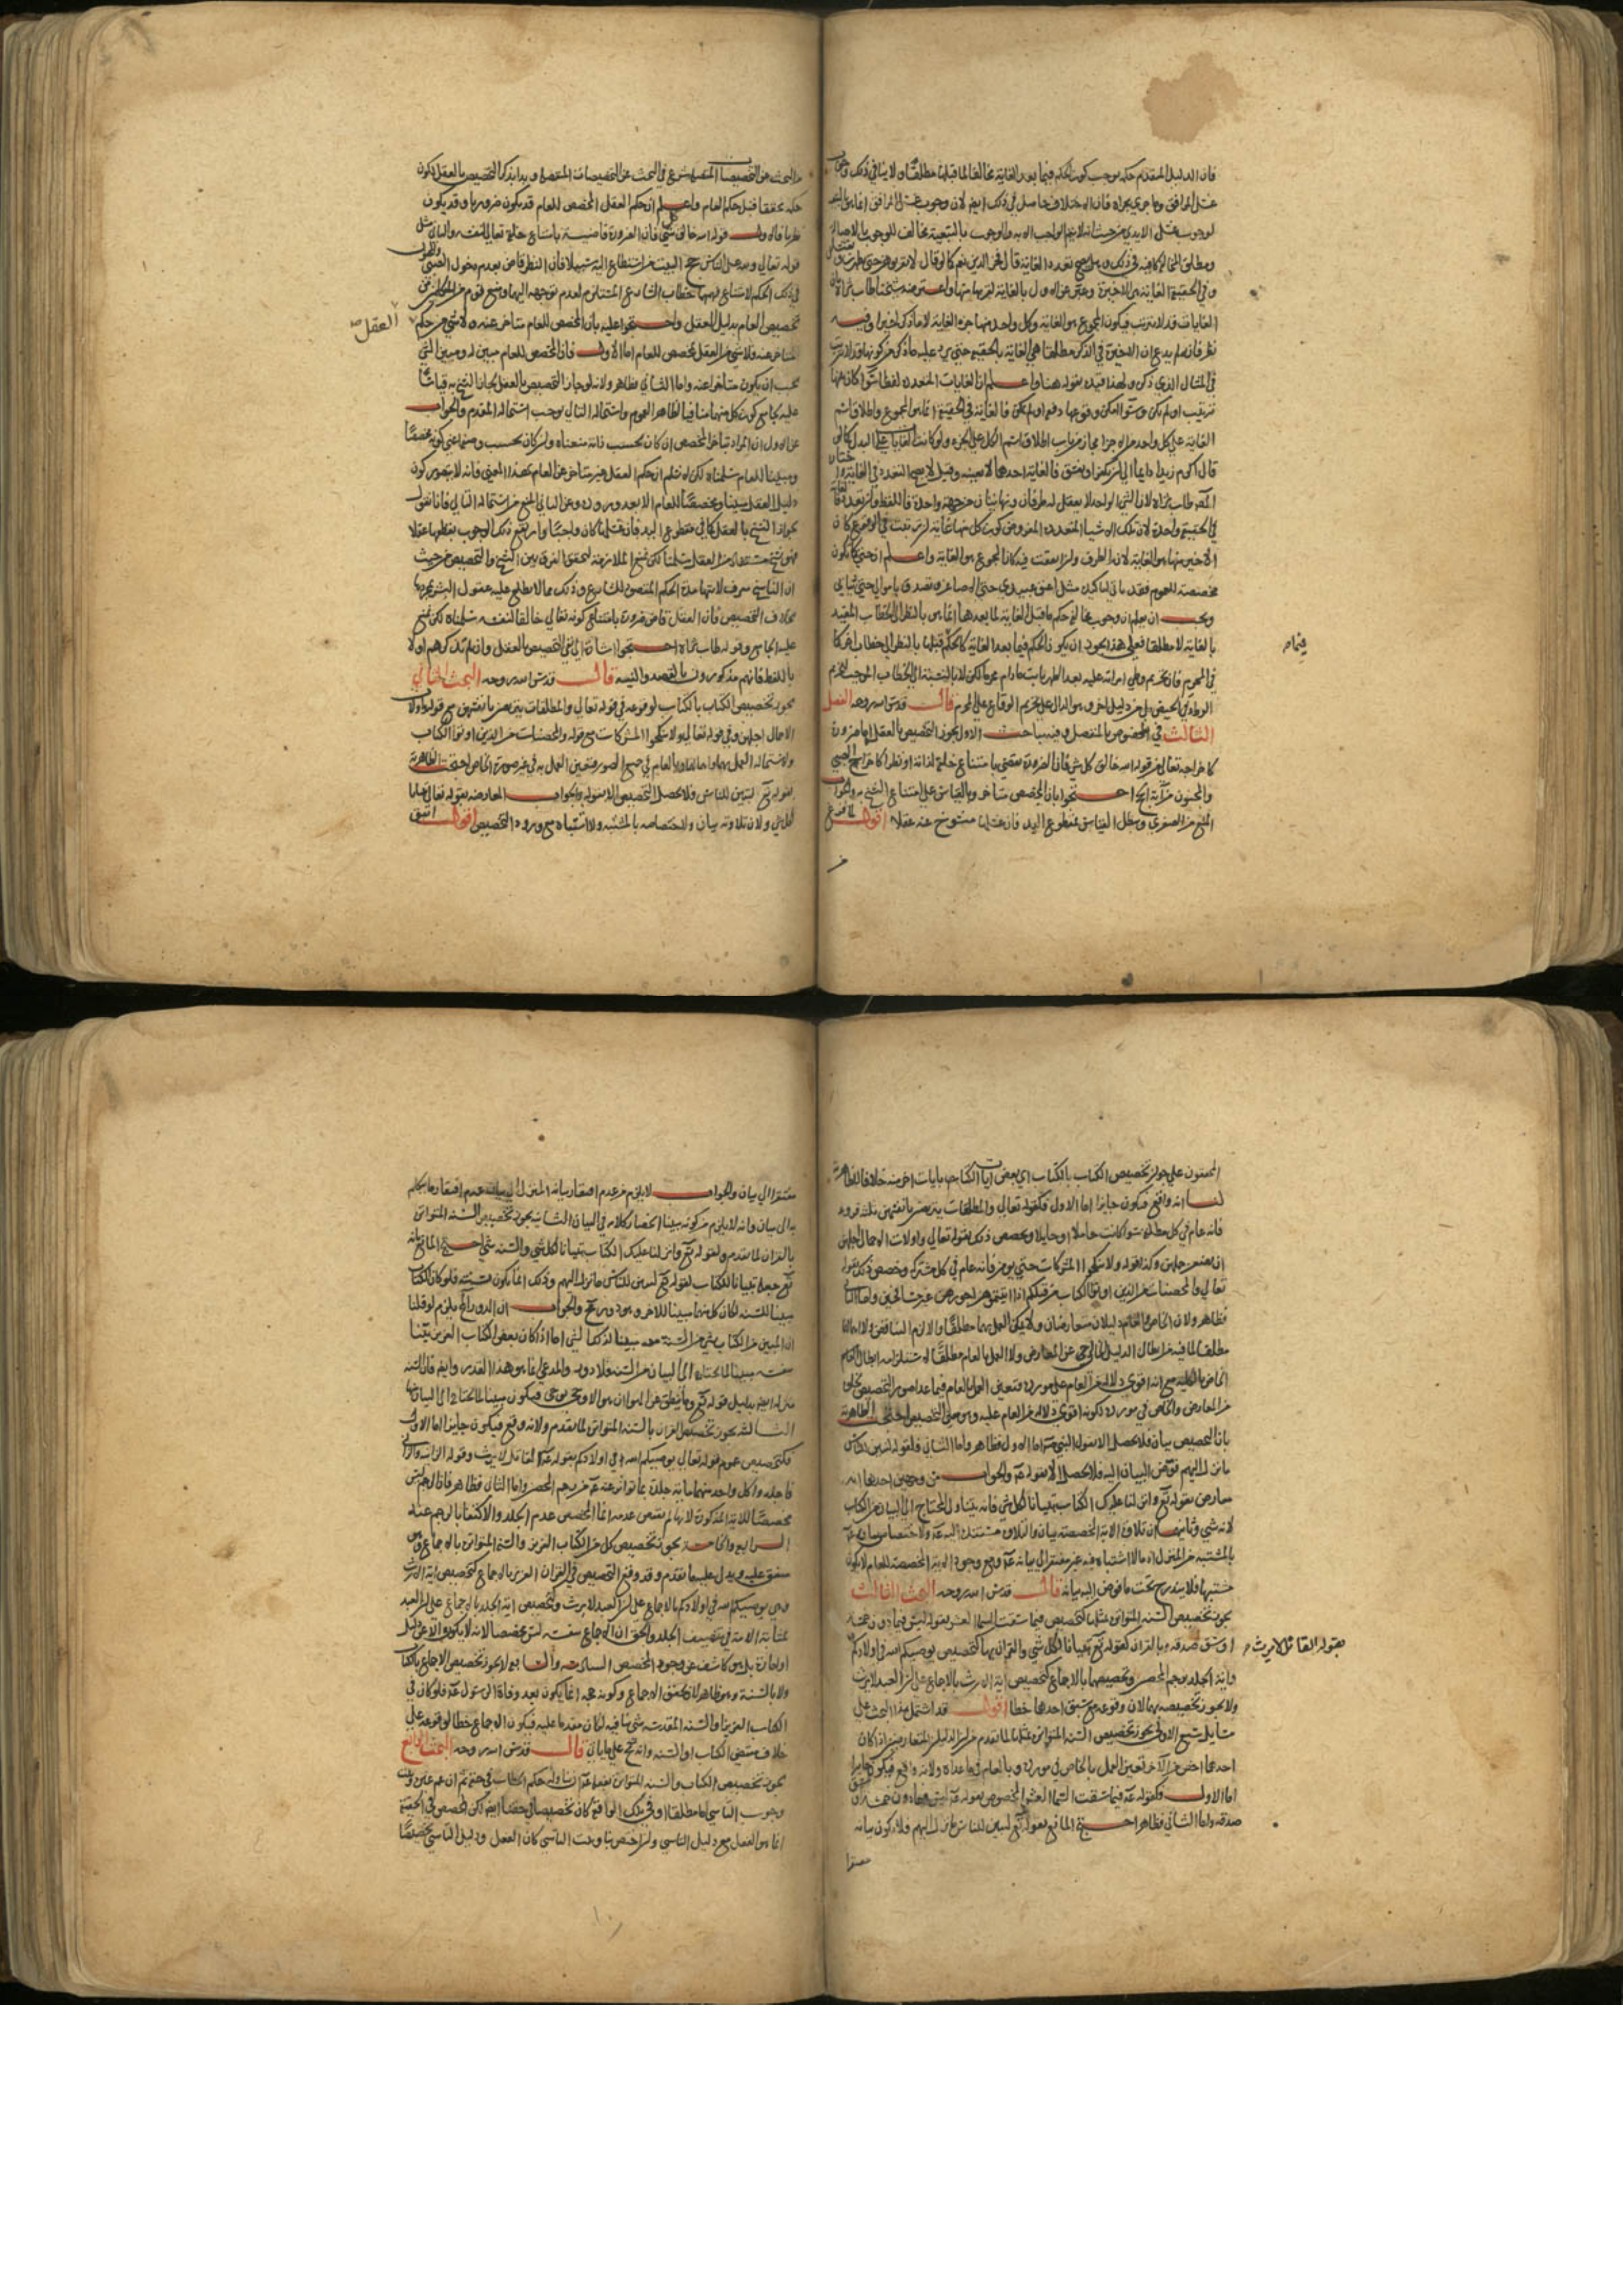 فان الدليل المتقدم حكمه يوجب كون الحكم فيما بعد الغاية مخالفا لما قبلها مطلقا ولا ينافي ذلك وجوب
غسل المرافق وما جرى مجراه فان الاختلاف حاصل في ذلك ايضا لان وجوب غسل المرافق انما هو
لوجوب غسل الايدي من حيث انه لا يتم الواجب الا به والوجوب بالتبعية مخالف للوجوب بالاصالة
ومطلق المخالفة كافية في ذلك وهل يصح تعدد الغاية قال فخر الدين نعم كما لو قال لا تقربوهن حتى يطهرن وحتى يغتسلن
وفي الحقيقة الغاية هي الاخيرة وعبر عن الاول بالغاية لقربها منها واعترضه شيخنا طاب ثراه بان
الغايات قد لا تترتب فيكون المجموع هو الغاية وكل واحد منها جزء الغاية لا ما ذكر اخيرا وفيه
نظر فانه لم يدع ان الاخيرة في الذكر مطلقا هي الغاية بالحقيقة حتى يرد عليه ما ذكر من كونها قد لا تترتب
في المثال الذي ذكره ولهذا قيده بقوله هنا واعلم ان الغايات المتعددة لفظا سواء كان بينها
ترتيب او لم يكن وسواء امكن وقوعها دفعة او لم يكن فالغاية في الحقيقة انما هو المجموع واطلاق اسم
الغاية على كل واحد من الاجزاء مجاز من باب اطلاق اسم الكل على الجزء ولو كانت الغايات على البدل كما لو
قال اكرم زيدا دائما الى ان يكفر او يفسق فالغاية احدهما لا بعينه وقيل لا يصح التعدد في الغاية واختار
المصنف طاب ثراه لان الشيء الواحد لا يعقل له طرفان ونهايتان من جهة واحدة فاللفظ وان تعدد فالغاية
في الحقيقة واحدة لان تلك الاشياء المتعددة المفروض كون كل منها غاية ان ترتبت في الوقوع كان
الاخير منها هو الغاية لانه الطرف وان اتفقت فيه كان المجموع هو الغاية واعلم ان حتى كما يكون
مخصصة للعموم فقد ياتي لتاكيده مثل اعتق عبيدي حتى الاصاغر وتصدق باموالي حتى ثيابي
ويجب ان يعلم ان وجوب مخالفة حكم ما قبل الغاية لما بعدها انما هو بالنظر الى الخطاب المقيد
بالغاية لا مطلقا فعلى هذا يجوز ان يكون الحكم فيما بعد الغاية كالحكم قبلها بالنظر الى خطاب اخر كما
في المحرم فان تحريم وطي امراته عليه بعد الطهر ثابت ما دام محرما لكن لا بالنسبة الى الخطاب الموجب لتحريم
الوطء في الحيض بل من دليل اخر وهو الدال على تحريم الوقاع على المحرم قال قدس الله روحه الفصل
الثالث في المخصوص بالمنفصل وفيه مباحث الاول يجوز التخصيص بالعقل اما ضرورة
كاخراجه تعالى من قوله الله خالق كل شيء فانا بالضرورة نقضي بامتناع خلقه لذاته او نظرا كاخراج الصبي
والمجنون من آية الحج احتجوا بان المخصص متاخر وبالقياس على امتناع النسخ به والجواب
المنع من الصغرى وبطل القياس بمقطوع اليد فان غسلها منسوخ عنه عقلا اقول لما فرغ
من
من البحث عن التخصيصات المتصلة شرع في البحث عن التخصيصات المنفصلة وبدا بذكر التخصيص بالعقل لكون
حكمه محققا قبل حكم العام واعلم ان حكم العقل المخصص للعام قد يكون ضروريا وقد يكون
نظريا فالاول كقوله الله خالق كل شيء فان الضرورة قاضية بامتناع خلقه تعالى لنفسه والثاني مثل
قوله تعالى ولله على الناس حج البيت من استطاع اليه سبيلا فان النظر قاض بعدم دخول الصبي والمجنون
في ذلك الحكم لامتناع فهمهما خطاب الشارع المستلزم لعدم توجهه اليهما ومنع قوم من المتكلمين من
تخصيص العام بدليل العقل واحتجوا عليه بان المخصص للعام متاخر عنه ولا شيء من حكم
العقل
المتاخر عنه فلا شيء من العقل بمخصص للعام اما الاول فلان المخصص للعام مبين له ومبين الشيء
يجب ان يكون متاخرا عنه واما الثاني فظاهر ولانه لو جاز التخصيص بالعقل لجاز النسخ به قياسا
عليه بجامع كون كل منهما منافيا لظاهر العموم واستحالة التالي يوجب استحالة المقدم والجواب
عن الاول ان المراد بتاخر المخصص ان كان بحسب ذاته منعناه وان كان بحسب وصفه اعني كونه مخصصا
ومبينا للعام سلمناه لكن لا نسلم ان حكم العقل غير متاخر عن العام بهذا المعنى فانه لا يتصور كون
دليل العقل مبينا ومخصصا للعام الا بعد وروده وعن الثاني المنع من استحالة التالي فانا نقول
بجواز النسخ بالعقل كما في مقطوع اليد فان غسلها كان واجبا وارتفع ذلك الوجوب بقطعها عقلا
فهو نسخ مستفاد من العقل سلمنا لكن نمنع الملازمة لتحقق الفرق بين النسخ والتخصيص من حيث
ان الناسخ معرف لانتهاء مدة الحكم المقصود للشارع وذلك مما لا يطلع عليه عقول البشر بمجردها
بخلاف التخصيص فان العقل قاض ضرورة بامتناع كونه تعالى خالقا لنفسه سلمناه لكن نمنع
علية الجامع وقوله طاب ثراه احتجوا اشارة الى نافي التخصيص بالعقل وان لم يذكرهم اولا
باللفظ فانهم مذكورون بالقصد والنية قال قدس الله روحه البحث الثاني
يجوز تخصيص الكتاب بالكتاب لوقوعه في قوله تعالى والمطلقات يتربصن بانفسهن مع قوله واولات
الاحمال اجلهن وفي قوله تعالى ولا تنكحوا المشركات مع قوله والمحصنات من الذين اوتوا الكتاب
ولاستحالة العمل بهما واهمالهما وبالعام في جميع الصور فتعين العمل به في غير صورة الخاص احتجت الظاهرية
بقوله تع لتبين للناس فلا يحصل التخصيص الا بقوله والجواب المعارضة بقوله تعالى تبيانا
لكل شيء ولان تلاوته بيان ولاختصاصه بالمشتبه ولا اشتباه مع ورود التخصيص اقول اتفق
المحققون على جواز تخصيص الكتاب بالكتاب اي بعض آيات الكتاب بايات اخر منه خلافا للظاهرية
لنا انه واقع فيكون جايزا اما الاول فكقوله تعالى والمطلقات يتربصن بانفسهن ثلثة قروء
فانه عام في كل مطلقة سواء كانت حاملا او حايلا وخصص ذلك بقوله تعالى واولات الاحمال اجلهن
ان يضعن حملهن وكذا قوله ولا تنكحوا المشركات حتى يؤمن فانه عام في كل مشركة وخصص ذلك بقوله
تعالى والمحصنات من الذين اوتوا الكتاب من قبلكم اذا اتيتموهن اجورهن غير مسافحين واما الثاني
فظاهر ولان الخاص والعام دليلان متعارضان ولا يمكن العمل بهما مطلقا والا لزم التناقض ولا اهمالهما
مطلقا لما فيه من ابطال الدليل الخالي عن المعارض ولا العمل بالعام مطلقا لاستلزامه ابطال الحكم
الخاص بالكلية مع انه اقوى دلالة من العام على مورده فتعين العمل بالعام فيما عدا صورة التخصيص لخلوه
من المعارض والخاص في مورده لكونه اقوى دلالة من العام عليه وهو معنى التخصيص احتجت الظاهرية
بان التخصيص بيان فلا يحصل الا بقول النبي ص اما الاول فظاهر واما الثاني فلقوله لتبين للناس
ما نزل اليهم فوض البيان اليه فلا يحصل الا بقوله ع والجواب من وجهين احدهما انه
معارض بقوله تع وانزلنا عليك الكتاب تبيانا لكل شيء فانه يتناول المحتاج الى البيان من الكتاب
لانه شيء وثانيهما ان تلاوة الاية المخصصة بيان والتلاوة مستندة اليه ع ولاختصاص بيانه ع
بالمشتبه من المنزل اذ ما لا اشتباه فيه غير مفتقر الى بيانه ع ومع وجود الاية المخصصة للعام لا يكون
مشتبها فلا يندرج تحت ما فوض اليه بيانه قال قدس الله روحه البحث الثالث
يجوز تخصيص السنة المتواترة بمثلها كتخصيص فيما سقت السماء العشر بقوله ليس فيما دون خمسة
اوسق صدقة وبالقران لقوله تع تبيانا لكل شيء والقران بها كتخصيص يوصيكم الله في اولادكم
بقوله القاتل لا يرث
وآية الجلد برجم المحصن وتخصيصهما بالاجماع كتخصيص اية الارث بالاجماع على ان العبد لا يرث
ولا يجوز تخصيصه بهما لان وقوعه مع سبق احدهما خطا اقول قد اشتمل هذا البحث على
مسايل تسع الاولى يجوز تخصيص السنة المتواترة بمثلها لما تقدم من ان الدليلين المتعارضين اذا كان
احدهما اخص من الآخر تعين العمل بالخاص في مورده وبالعام فيما عداه ولانه واقع فيكون جايزا
اما الاول فكقوله ع فيما سقت السماء العشر المخصوص بقوله ع ليس فيما دون خمسة اوسق
صدقة واما الثاني فظاهر احتج المانع بقوله تع لتبين للناس ما نزل اليهم فلا يكون بيانه
مفتقرا
مفتقرا الى بيان والجواب لا يلزم من عدم افتقار بيانه المنزل الى بيان عدم افتقار ما يحكم
به الى بيان وانه لا يلزم من كونه مبينا انحصار كلامه في البيان الثانية يجوز تخصيص السنة المتواترة
بالقران لما تقدم ولقوله تع وانزلنا عليك الكتاب تبيانا لكل شيء والسنة شيء احتج المانع بانه
تع جعله تبيانا للكتاب لقوله تع لتبين للناس ما نزل اليهم وذلك انما يكون بسنته فلو كان الكتاب
مبينا للسنة لكان كل منهما مبينا للاخر وهو دور والجواب ان الدور انما يلزم لو قلنا
ان المبين من الكتاب بشيء من السنة مبينا لذلك الشيء اما اذا كان بعض الكتاب العزيز مبينا
بنفسه مبينا لما يحتاج الى البيان من السنة فلا دور والمدعى انما هو هذا القدر وايضا فان السنة
منزلة ايضا بدليل قوله تع وما ينطق عن الهوى ان هو الا وحي يوحى فيكون مبينا للمحتاج الى البيان منها
الثالثة يجوز تخصيص القران بالسنة المتواترة لما تقدم ولانه وقع فيكون جايزا اما الاول
فكتخصيص عموم قوله تعالى يوصيكم الله في اولادكم بقوله ع القاتل لا يرث وقوله الزانية والزاني
فاجلدوا كل واحد منهما مائة جلدة بما تواتر عنه ع من رجم المحصن واما الثاني فظاهر فان الرجم ليس
مخصصا للاية المذكورة لانها لم تقتض عدمه انما المخصص عدم الجلد والاكتفاء بالرجم عنه
الرابعة والخامسة يجوز تخصيص كل من الكتاب العزيز والسنة المتواترة بالاجماع وهو
متفق عليه ويدل عليه ما تقدم وقد وقع التخصيص في القران العزيز بالاجماع كتخصيص اية الارث
وهي يوصيكم الله في اولادكم بالاجماع على ان العبد لا يرث وكتخصيص اية الجلد بالاجماع على ان العبد
بمثابة الامة في تنصيف الجلد والحق ان الاجماع بنفسه ليس مخصصا لانه لا يكون الا عن دليل
او امارة بل هو كاشف عن وجود المخصص السادسة والسابعة لا يجوز تخصيص الاجماع بالكتاب
ولا بالسنة وهو ظاهر لان تحقق الاجماع وكونه حجة انما يكون بعد وفاة الرسول ع فلو كان في
الكتاب العزيز او السنة المقدسة شيء ينافيه لكان متقدما عليه فيكون الاجماع خطا لوقوعه على
خلاف مقتضى الكتاب او السنة وانه لا يصح على ما ياتي قال قدس الله روحه البحث الرابع
يجوز تخصيص الكتاب والسنة المتواترة بفعله ع ان تناوله حكم الخطاب في حقه ثم ان عم غيره وثبت
وجوب التاسي اما مطلقا او في تلك الواقعة كان تخصيصا في حقنا ايضا لكن المخصص في الحقيقة
انما هو الفعل مع دليل التاسي وان اختص بنا وثبت التاسي كان الفعل ودليل التاسي تخصيصا